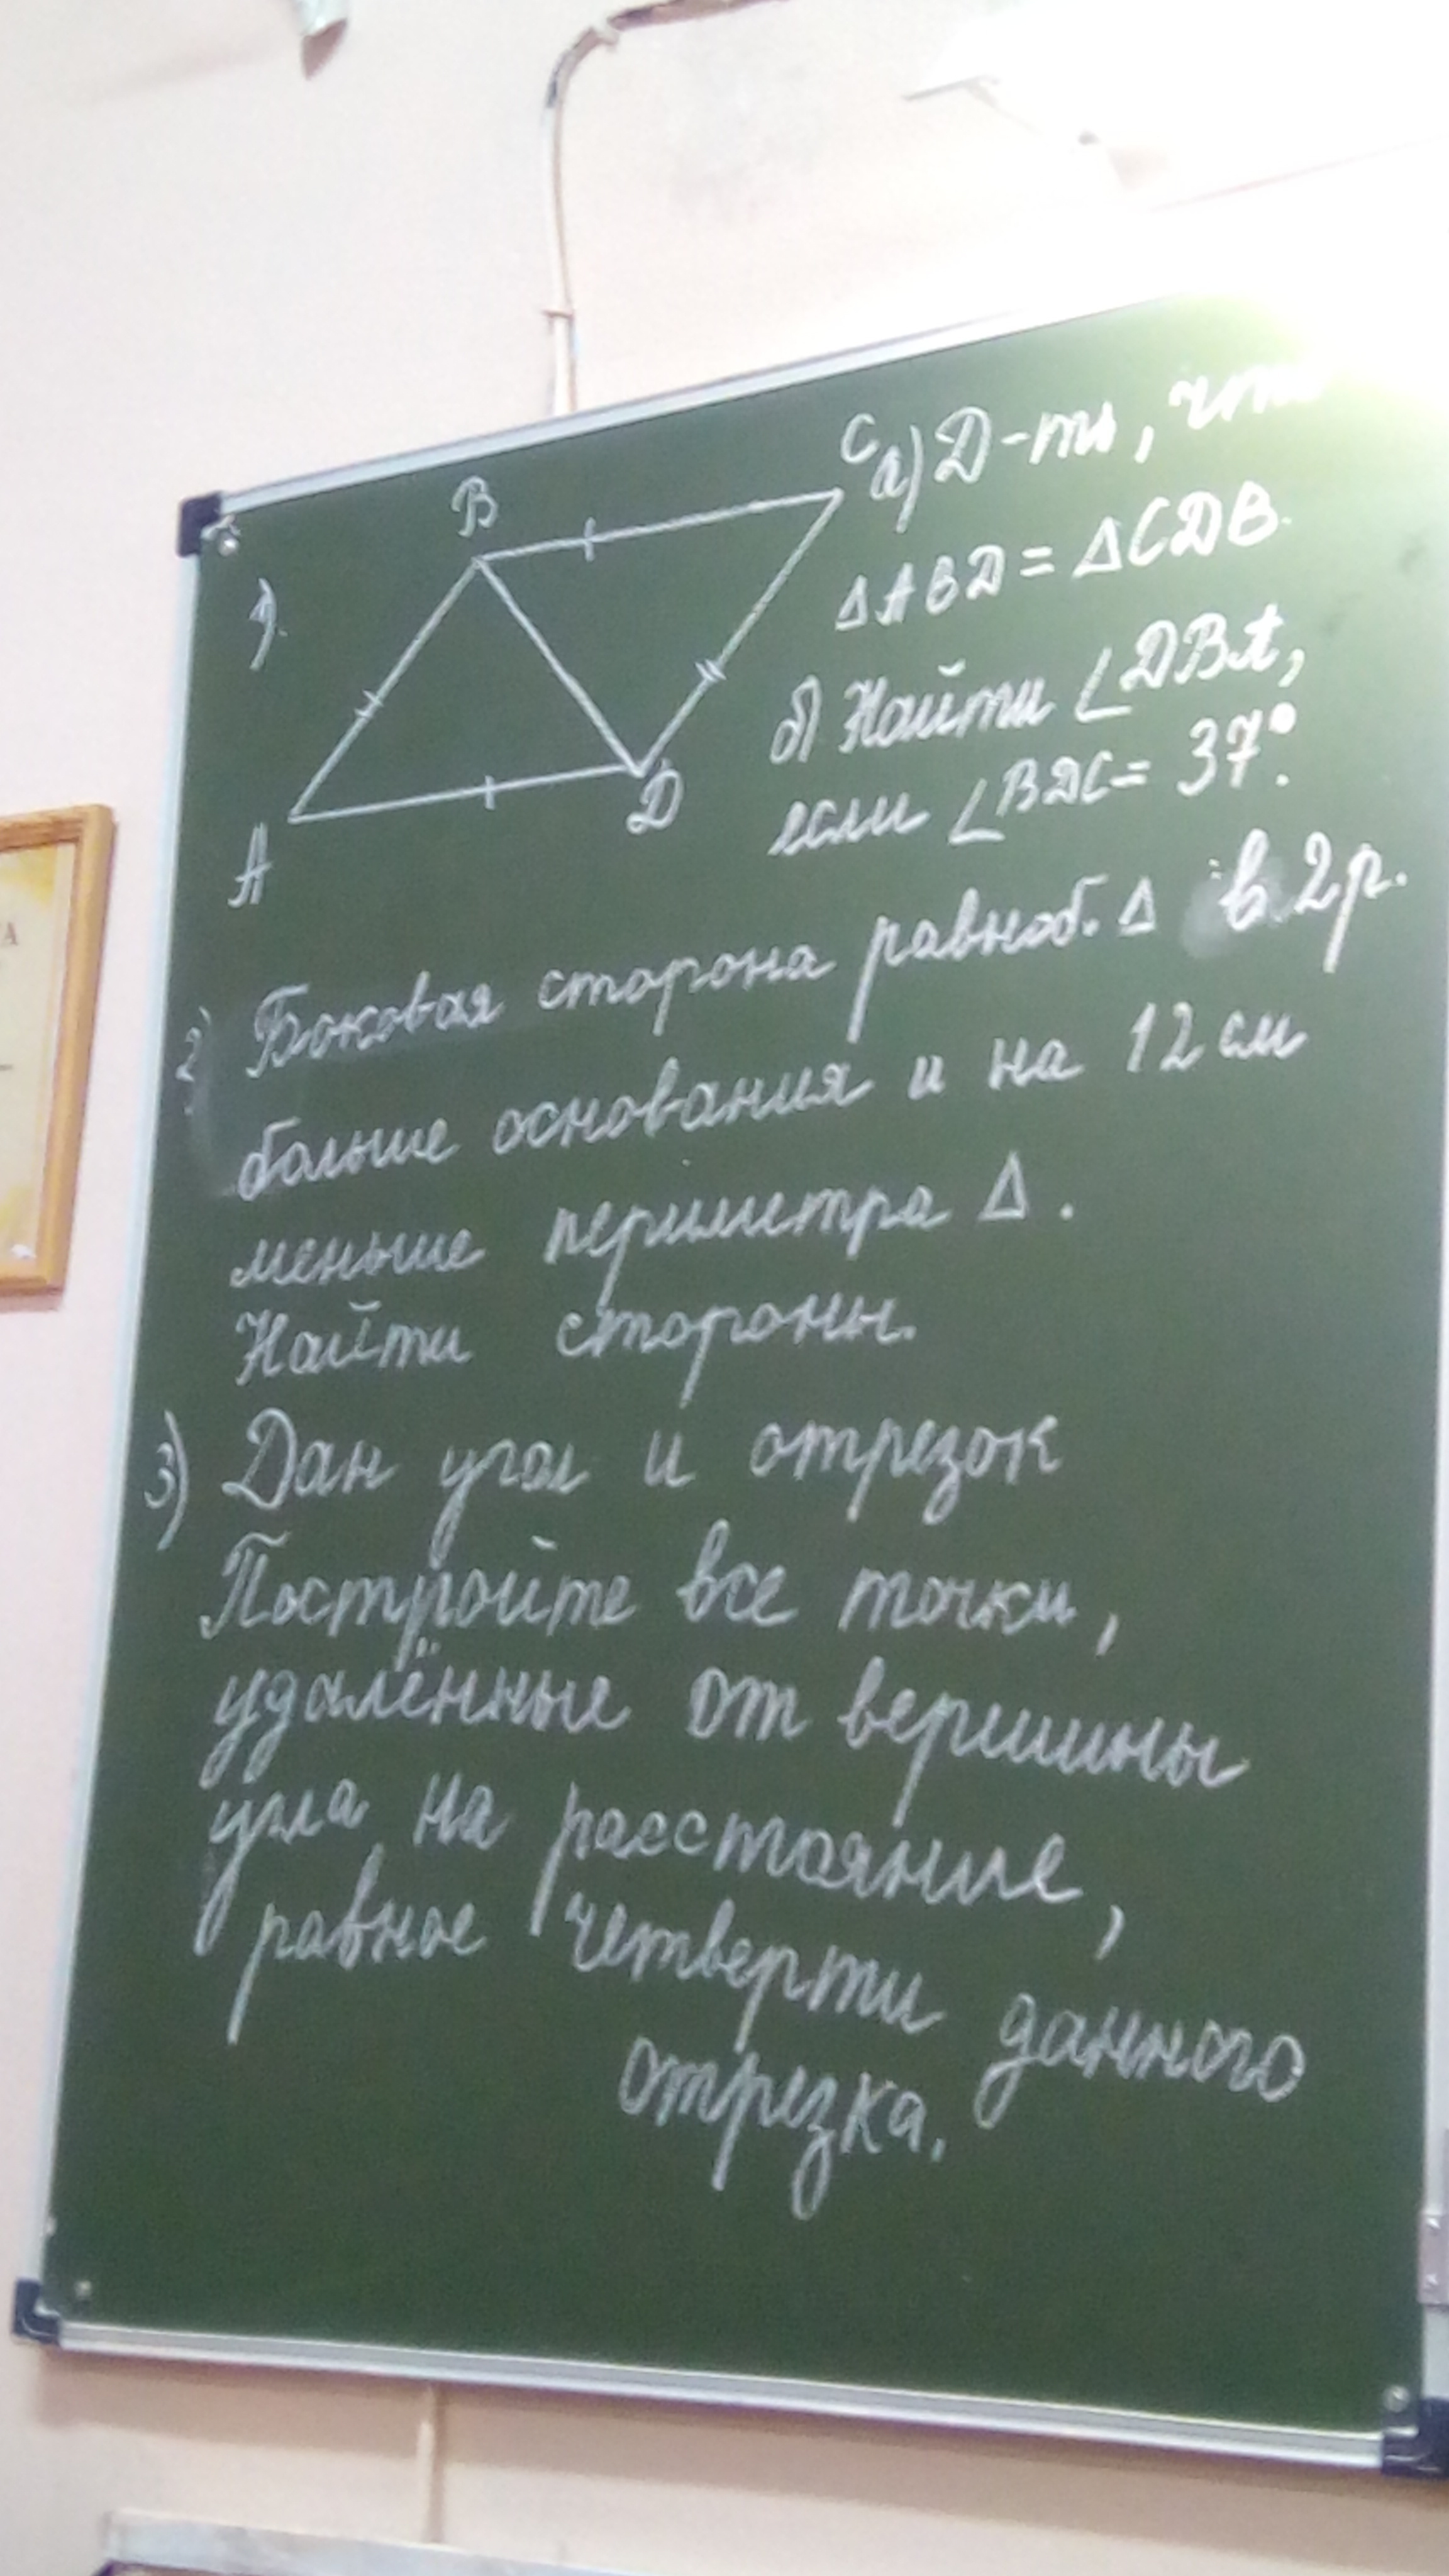 1).
B
C
A
D
а) D-ть, что
ΔABD = ΔCDB.
б) Найти ∠DBA,
если ∠BDC = 37°.
2) Боковая сторона равноб. Δ в 2 р.
больше основания и на 12 см
меньше периметра Δ.
Найти стороны.
3) Дан угол и отрезок
Постройте все точки,
удалённые от вершины
угла на расстояние,
равное четверти данного
отрезка.